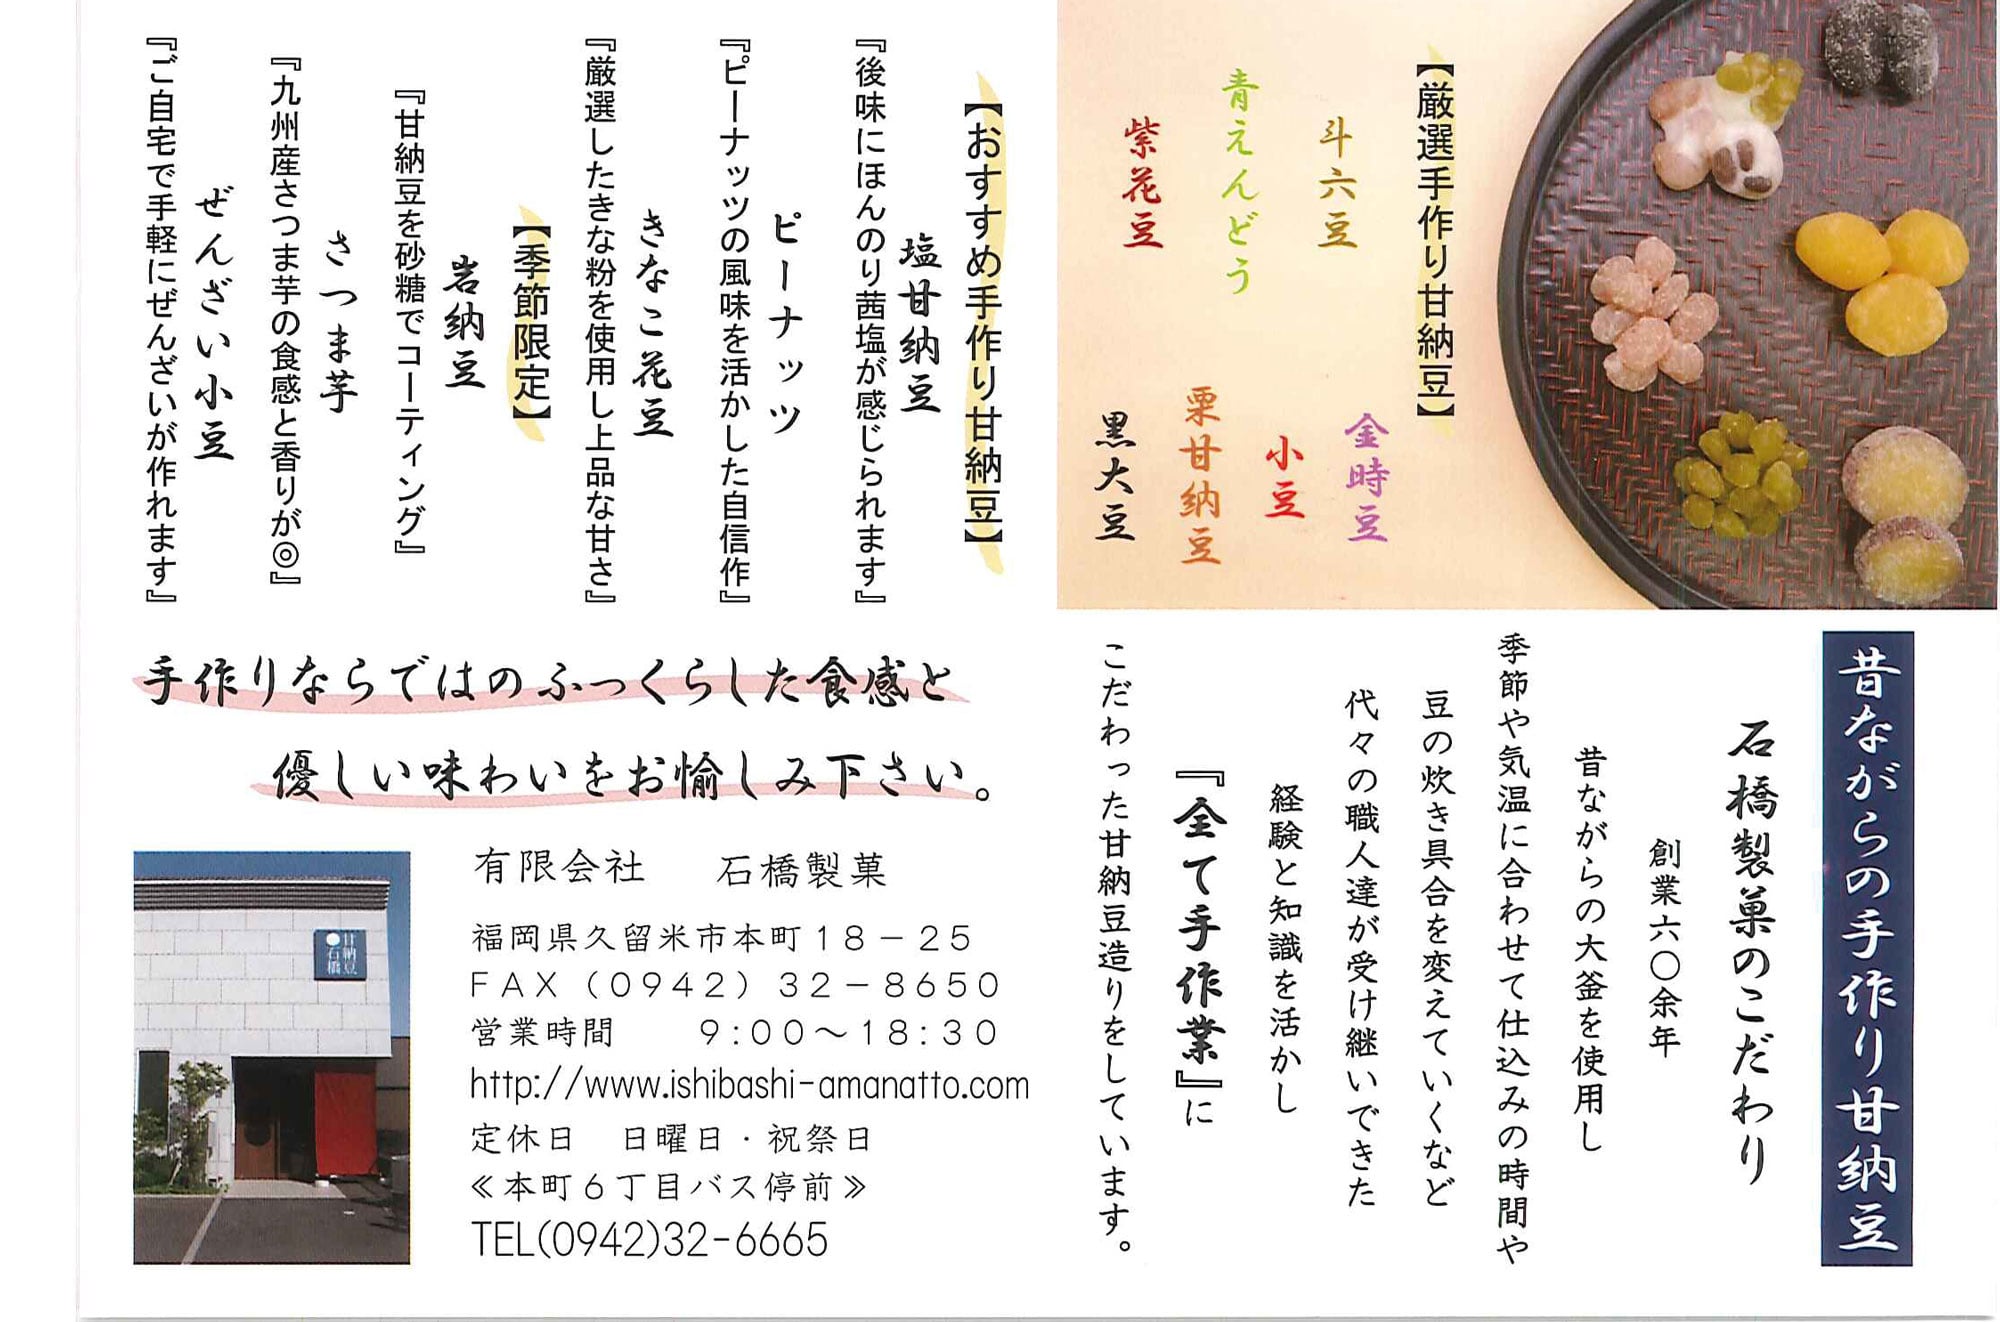 【厳選手作り甘納豆】
斗六豆
金時豆
青えんどう
小豆
紫花豆
栗甘納豆
黒大豆
【おすすめ手作り甘納豆】
塩甘納豆
『後味にほんのり茜塩が感じられます』
ピーナッツ
『ピーナッツの風味を活かした自信作』
きなこ花豆
『厳選したきな粉を使用し上品な甘さ』
【季節限定】
岩納豆
『甘納豆を砂糖でコーティング』
さつま芋
『九州産さつま芋の食感と香りが◎』
ぜんざい小豆
『ご自宅で手軽にぜんざいが作れます』
昔ながらの手作り甘納豆
石橋製菓のこだわり
創業六〇余年
昔ながらの大釜を使用し
季節や気温に合わせて仕込みの時間や
豆の炊き具合を変えていくなど
代々の職人達が受け継いできた
経験と知識を活かし
『全て手作業』に
こだわった甘納豆造りをしています。
手作りならではのふっくらした食感と
優しい味わいをお愉しみ下さい。
甘納豆
●石橋
有限会社　石橋製菓
福岡県久留米市本町18－25
FAX（0942）32－8650
営業時間　9:00～18:30
http://www.ishibashi-amanatto.com
定休日　日曜日・祝祭日
≪本町6丁目バス停前≫
TEL(0942)32-6665